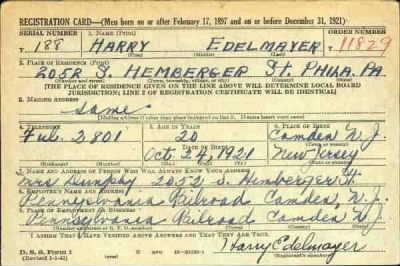 REGISTRATION CARD—(Men born on or after February 17, 1897 and on or before December 31, 1921)
SERIAL NUMBER 1. NAME (Print) ORDER NUMBER
T 188 HARRY EDELMAYER 11829
(First) (Middle) (Last)
2. PLACE OF RESIDENCE (Print)
2052 S. HEMBERGER St. PHILA. PA
(Number and street) (Town, township, village, or city) (County) (State)
[THE PLACE OF RESIDENCE GIVEN ON THE LINE ABOVE WILL DETERMINE LOCAL BOARD
JURISDICTION; LINE 2 OF REGISTRATION CERTIFICATE WILL BE IDENTICAL]
3. MAILING ADDRESS
Same
[Mailing address if other than place indicated on line 2. If same insert word same]
4. TELEPHONE 5. AGE IN YEARS 6. PLACE OF BIRTH
Ful. 2801 20 Camden N.J.
DATE OF BIRTH (Town or county)
Oct 24, 1921 New Jersey
(Exchange) (Number) (Mo.) (Day) (Yr.) (State or country)
7. NAME AND ADDRESS OF PERSON WHO WILL ALWAYS KNOW YOUR ADDRESS
Mrs 2052 S. Hemberger St
8. EMPLOYER'S NAME AND ADDRESS
Pennsylvania Railroad Camden, N.J.
9. PLACE OF EMPLOYMENT OR BUSINESS
Pennsylvania Railroad Camden N.J.
(Number and street or R. F. D. number) (Town) (County) (State)
I AFFIRM THAT I HAVE VERIFIED ABOVE ANSWERS AND THAT THEY ARE TRUE.
D. S. S. Form 1 Harry Edelmayer
(over)